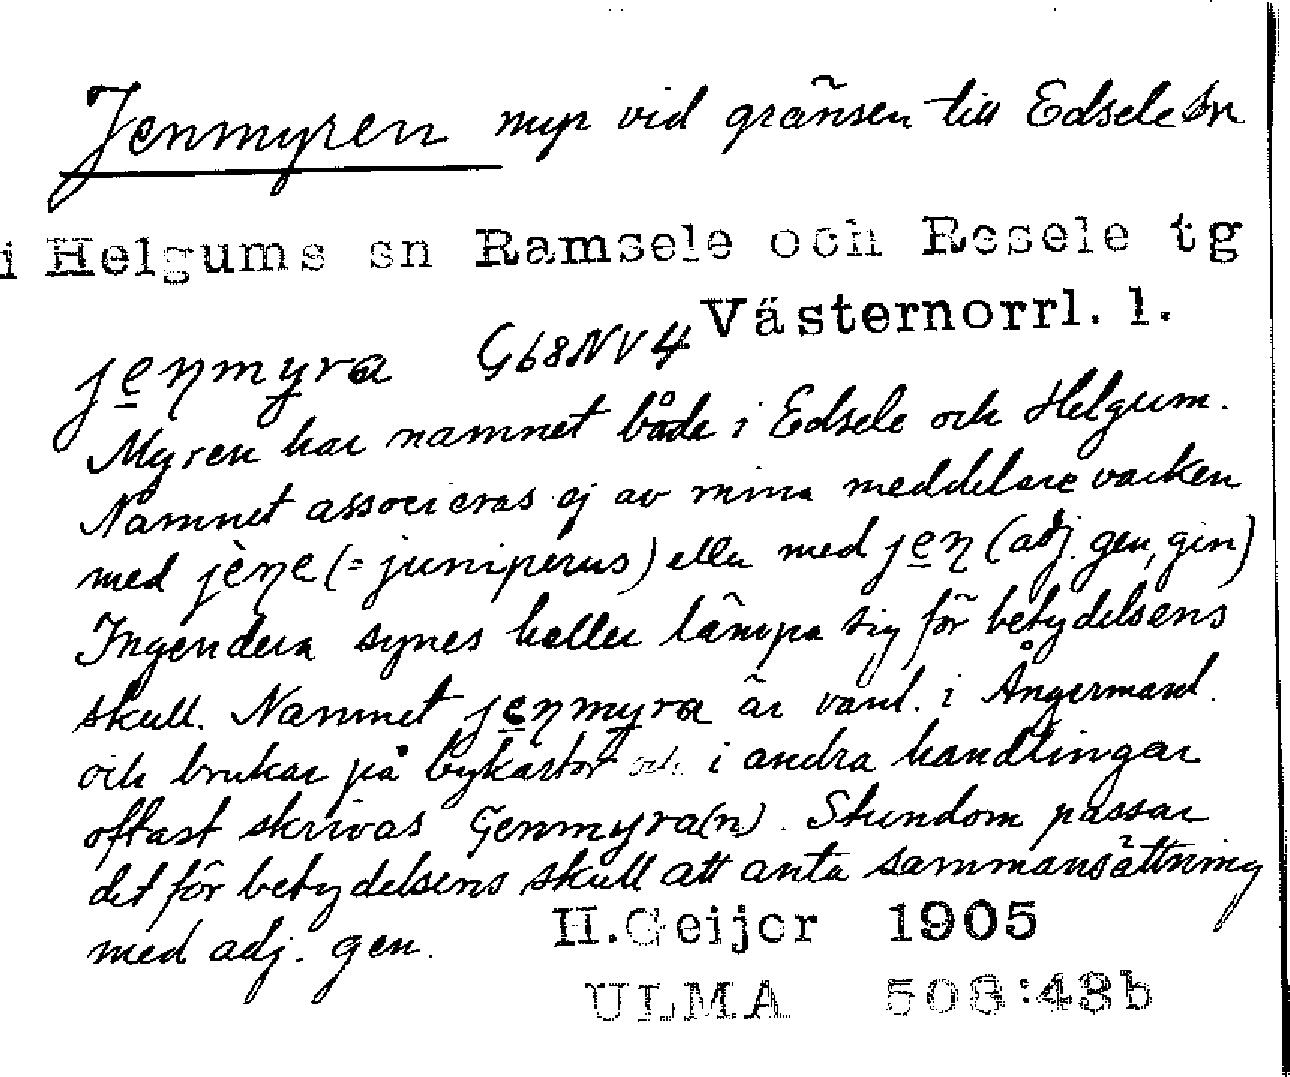 Jenmyren myr vid gränsen till Edsele sn
i Helgums sn Ramsele och Resele tg
Västernorrl. l.
jeŋmyra G68NV4
Myren har namnet både i Edsele och Helgum.
Namnet associeras ej av mina meddelare varken
med jèŋe (= juniperus) eller med jeŋ (adj. gen, gin)
Ingendera synes heller lämpa sig för betydelsens
skull. Namnet jeŋmyra är vanl. i Ångermanl.
och brukar på bykartor och i andra handlingar
oftast skrivas Genmyra(n). Stundom passar
det för betydelsens skull att anta sammansättning
med adj. gen.
H.Geijer 1905
ULMA 508:43b